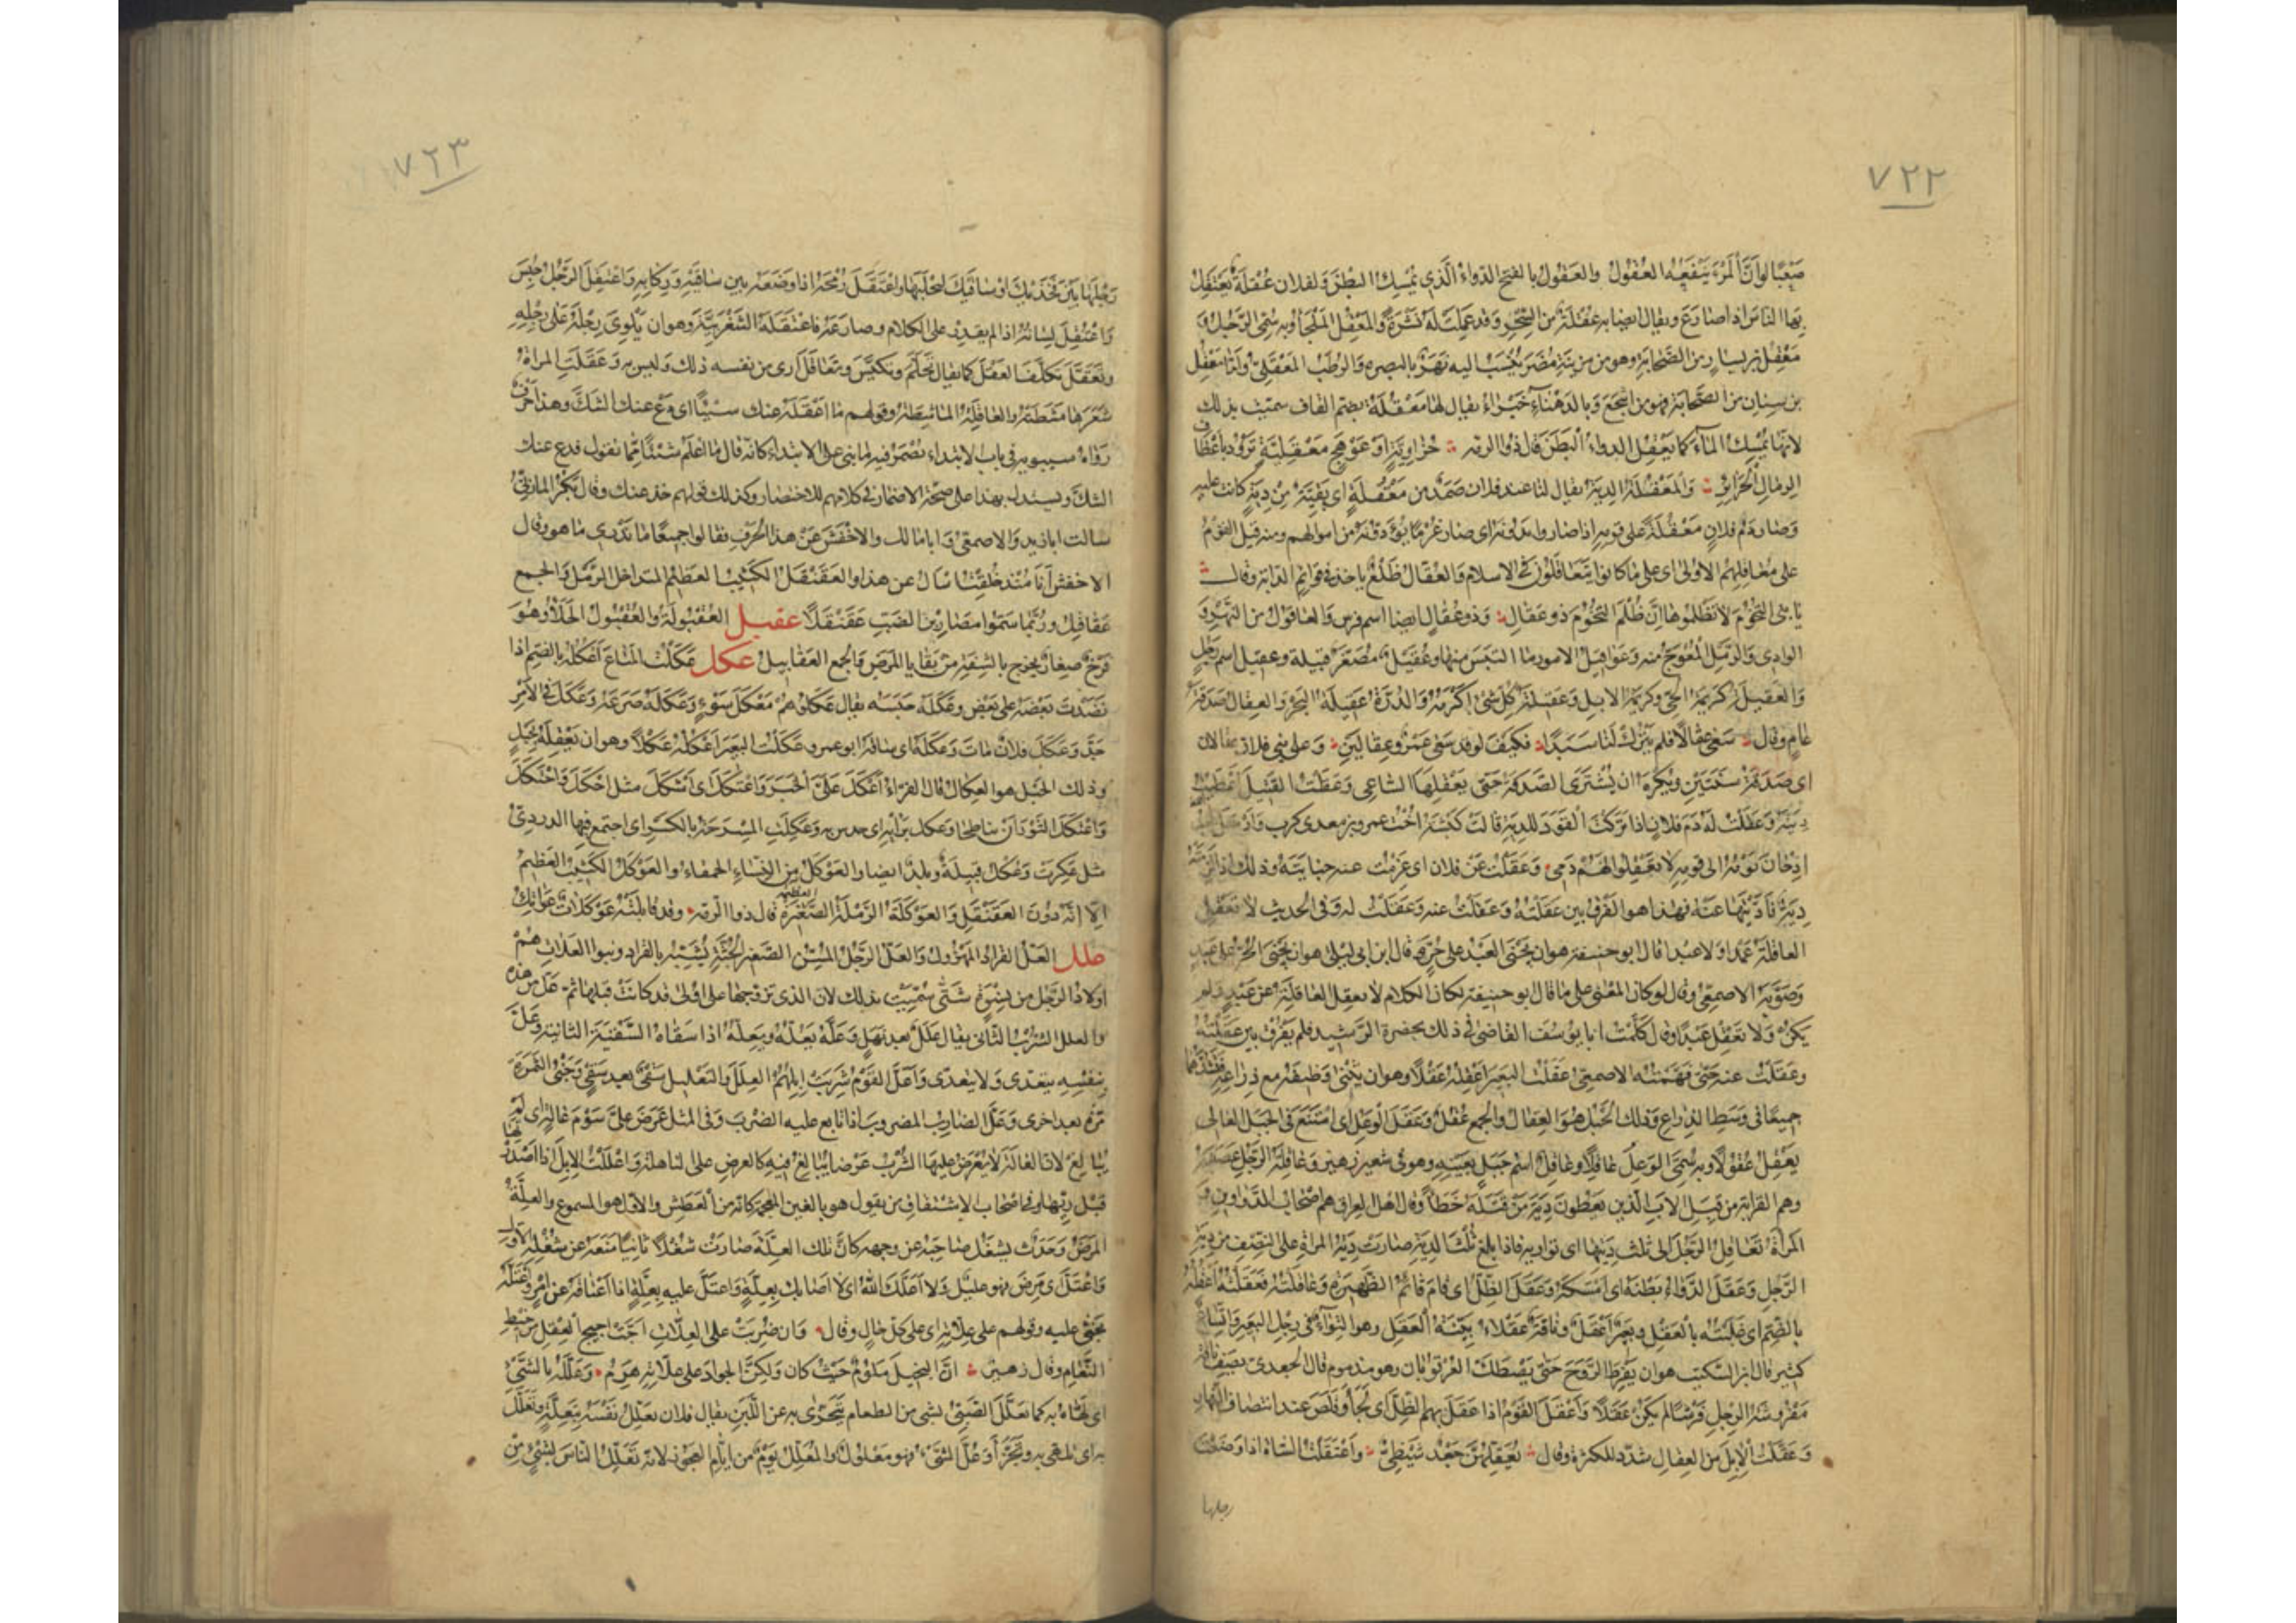 ٧٢٢
صَعْبًا لو اَنَّ المَرْءَ يَنْفَعُهُ العُقُولُ والعَقُولُ بالفتح الدواءُ الَّذي يُمْسِكُ البَطْنَ ولفلان عُقْلَةٌ يَعْتَقِلُ
بها الناسَ اذا صارَعَ ويقال ايضا به عُقْلَةٌ من السِّحْرِ وقد عَمِلَتْ لَهُ نَشْرَةً والمَعْقِلُ المَلْجَأُ وبه سُمِّيَ الرَّجُلُ و
مَعْقِلُ بن يسار من الصَّحابَةِ وهو من مزينة مُضَرَ يُنْسَبُ اليه نَهَرٌ بالبصرة والرُطَبُ المَعْقِلِيُّ وامّا مَعْقِلُ
بن سنان من الصحابة فهو من اشجع وبالدَهْنَاءِ خَبْرَاءُ يقال لها مَعْقُلَةُ بضم القاف سميت بذلك
لانها تُمْسِكُ الماءَ كما يَعْقِلُ الدواءُ البَطْنَ قال ذو الرمة حُزَاوِيَّةٍ اَوْ عَوْهَجٍ مَعْقُلِيَّةٍ تَرُودُ بِاَعْطَافِ
الرمالِ الحَرَائِرِ والمَعْقُلَةُ الدِيَةُ يقال لنا عند فلان ضَمَدٌ من مَعْقُلَةٍ اى بَقِيَّةٌ مِنْ دِيَةٍ كانت عليه
وصار دَمُ فلانٍ مَعْقُلَةً على قومِهِ اذا صاروا يَدُونَهُ اى صار غُرْمًا يُؤَدُّونَهُ من اموالهم ومنه قيل القومُ
على مَعَاقِلِهِمُ الاولى اى على ما كانوا يَتَعَاقَلُونَ في الجاهلية كذلك في الاسلام والعُقَّالُ ظَلْعٌ ياخذ في قوائم الدابة وقال
يا بَنِيَّ التُّخُومَ لا تَظْلِمُوهَا اِنَّ ظُلْمَ التُّخُومِ ذو عُقَّالِ وذو عُقَّالٍ ايضا اسم فرس والعاقول من النهر و
الوادي والرمل المُعْوَجُّ منه وعَوَاقِيلُ الامور ما التَبَسَ منها وعُقَيْلٌ مُصَغَّرٌ قبيلة وعَقِيلٌ اسم رَجُلٍ
والعَقِيلَةُ كَرِيمَةُ الحَيِّ وكَرِيمَةُ الابِلِ وعَقِيلَةُ كُلِّ شئ اَكْرَمُهُ والدُرَّةُ عَقِيلَةُ البَحْرِ والعِقَالُ صَدَقَةُ
عامٍ وقال سَعَى عِقَالًا فلم يَتْرُكْ لَنَا سَبَدًا فكَيْفَ لو قد سَعَى عَمْرٌو عِقَالَيْنِ وعلى بني فلان عقالان
اى صَدَقَةُ سَنَتَيْنِ ويُكْرَهُ ان تُشْتَرَى الصَّدَقَةُ حَتَّى يَعْقِلَهَا الساعي وعَقَلْتُ القَتِيلَ اَعْطَيْتُ
دِيَتَهُ وعَقَلْتُ لَهُ دَمَ فلانٍ اذا تَرَكْتُ القَوَدَ للدية قالت كَبْشَةُ اُخْتُ عمرو بن معدي كرب
اِذْ حَانَ يَوْمُهُ الى قومِهِ لا تَعْقِلُوا لَهُمْ دَمِي وعَقَلْتُ عَنْ فلان اى غَرِمْتُ عنه جنايَتَهُ وذلك اذا لَزِمَتْهُ
دِيَةٌ فَاَدَّيْتَهَا عنه فهذا هو الفَرْقُ بين عَقَلْتُهُ وعَقَلْتُ عنه وعَقَلْتُ له وفي الحديث لا تَعْقِلُ
العاقلَةُ عَمْدًا ولا عبدا قال ابو حنيفة هو ان يَجْنِيَ العَبْدُ على حُرٍّ وقال ابن ابي ليلى هو ان يَجْنِيَ الحُرُّ على عبد
وصَوَّبَهُ الاصمعيُّ وقال لو كان المَعْنَى على ما قال ابو حنيفة لكان الكلام لا تعقل العاقلة عن عَبْدٍ ولم
يَكُنْ ولا تَعْقِلُ عَبْدًا وقال كَلَّمْتُ ابا يوسُفَ القاضي في ذلك بحضرة الرشيد فلم يَفْرُقْ بين عَقَلْتُهُ
وعَقَلْتُ عنه حتى فَهَّمْتُهُ الاصمعي عَقَلْتُ البَعِيرَ اَعْقِلُهُ عَقْلًا وهو ان تَثْنِيَ وَظِيفَهُ مع ذِرَاعِهِ فَتَشُدَّهُمَا
جميعًا في وَسَطِ الذِرَاعِ وذلك الحَبْلُ هو العِقَالُ والجمع عُقُلٌ وعَقَلَ الوَعِلُ اى امْتَنَعَ في الجَبَلِ العالي
يَعْقِلُ عُقُولًا وبه سُمِّيَ الوَعِلُ عَاقِلًا وعَاقِلٌ اسْمُ جَبَلٍ بعَيْنِهِ وهو في شعر زهير وعَاقِلَةُ الرَّجُلِ عَصَبَتُهُ
وهم القرابة من قِبَلِ الاَبِ الَّذين يُعْطُونَ دِيَةَ مَنْ قَتَلَهُ خَطَأً وقال اهل العراق هم اصحاب الدواوين و
المَرْأَةُ تُعَاقِلُ الرَّجُلَ الى ثلث دِيَتِهَا اى توازيه فاذا بلغ ثُلُثَ الدِيَةِ صارت دِيَةُ المراة على النِصْفِ من دية
الرَّجُلِ وعَقَلَ الدَّوَاءُ بَطْنَهُ اى اَمْسَكَهُ وعَقَلَ الظِلُّ اى قامَ قَائِمُ الظهيرة وعَاقَلْتُهُ فَعَقَلْتُهُ اَعْقُلُهُ
بالضَّمِّ اى غَلَبْتُهُ بالعَقْلِ وبعيرٌ اَعْقَلُ وناقةٌ عَقْلاءُ بَيِّنَةُ العَقَلِ وهو الْتِوَاءٌ في رِجْلِ البَعِيرِ واتِّسَاعٌ
كثير قال ابن السكيت هو ان يُفْرِطَ الرَّوَحُ حَتَّى يَصْطَكَّ العُرْقُوبان وهو مذموم قال الجعدي يَصِفُ ناقَةً
مَفْرُوشَةُ الرِجْلِ فَرْشًا لم يَكُنْ عَقَلًا واَعْقَلَ القَوْمُ اذا عَقَلَ بهم الظِلُّ اى لَجَأَ وقَلَصَ عند انتصاف النهار
وعَقَّلْتُ الاِبِلَ من العِقَالِ شُدِّدَ للكثرة وقال يُعَقِّلُهُنَّ جَعْدٌ شَيْظَمِيٌّ واعْتَقَلْتُ الشاةَ اذا وضَعْتَ
رجلها
٧٢٣
رِجْلَهَا بَيْنَ فَخِذَيْكَ اوْ سَاقَيْكَ لِتَحْلُبَهَا واعْتَقَلَ رُمْحَهُ اذا وضَعَهُ بين ساقِهِ ورِكَابِهِ واعْتُقِلَ الرَّجُلُ حُبِسَ
واعْتُقِلَ لِسَانُهُ اذا لم يقدر على الكلام وصارَعَهُ فاعْتَقَلَهُ الشَّغْزَبِيَّةَ وهو ان يَلْوِيَ رِجْلَهُ عَلَى رِجْلِهِ
وتَعَقَّلَ تكلَّفَ العَقْلَ كما يقال تَحَلَّمَ وتَكَيَّسَ وتعَاقَلَ اَرَى من نفسه ذلك وليس به وعَقَلَتِ المراةُ
شَعَرَهَا مَشَطَتْهُ والعاقِلَةُ الماشِطَةُ وقولهم ما اَعْقِلُهُ عنك شيئًا اى دَعْ عنك الشَكَّ وهذا حَرْفٌ
رَوَاهُ سيبويه في باب الابتداء يُضْمَرُ فيه ما بُنِيَ على الابتداء كانه قال ما اَعْلَمُ شَيْئًا مِمَّا تقول فدع عنك
الشَكَّ ويستدل بهذا على صحَّة الاضمار في كلامهم للاختصار وكذلك قولهم خذ عنك وقال بَكْرٌ المازِنِيُّ
سالت ابا زيد والاصمعيَّ وابا مالك والاخْفَشَ عَنْ هذا الحَرْفِ فقالوا جميعًا ما نَدْرِي ما هو وقال
الاخفش اَنَا مُنْذُ خُلِقْتُ اَسْاَلُ عن هذا والعَقَنْقَلُ الكَثِيبُ العَظِيمُ المتداخل الرَّمْلِ والجمع
عَقَاقِلُ ورُبَّمَا سَمَّوْا مَصَارِينَ الضَبِّ عَقَنْقَلًا عقبل العُقْبُولَةُ والعُقْبُولُ الحَلَأُ وهُوَ
قُرُوحٌ صِغَارٌ تخرج بالشَفَةِ مِنْ بَقَايا المَرَضِ والجمع العَقَابِيلُ عكل عَكَلْتُ المَتَاعَ اَعْكُلُهُ بالضم اذا
نَضَدْتَ بَعْضَهُ على بَعْضٍ وعَكَلَهُ حَبَسَهُ يقال عَكَلُوهُمْ مَعْكَلَ سَوْءٍ وعَكَلَهُ صَرَعَهُ وعَكَلَ في الاَمْرِ
جَدَّ وعَكَلَ فلان ماتَ وعَكَلَهُ اى ساقَهُ ابو عمرو عَكَلْتُ البَعِيرَ اَعْكُلُهُ عَكْلًا وهو ان تَعْقِلَهُ بِحَبْلٍ
وذلك الحَبْلُ هو العِكَالُ قال الفرّاءُ اَعْكَلَ عَلَيَّ الخَبَرُ واعْتَكَلَ اى اَشْكَلَ مثل اَحْكَلَ واحْتَكَلَ
واعْتَكَلَ الثَوْرَانِ تناطحا وعكل برأيه اى حدس به وعَكِلَتِ المِسْرَجَةُ بالكسر اى اجتمع فيها الدرديُّ
مثل عَكِرَتْ وعُكْلٌ قَبِيلَةٌ وبلدٌ ايضا والعَوْكَلُ مِنَ النِساءِ الحمقاءُ والعَوْكَلُ الكَثِيبُ العَظِيمُ
اِلّا انَّهُ دُونَ العَقَنْقَلِ والعَوْكَلَةُ الرَّمْلَةُ العظيمة قال ذو الرمة وقد قابَلَتْهُ عَوْكَلاتٌ عَوَانِكُ
علل العَلُّ القُرَادُ المَهْزُولُ والعَلُّ الرَّجُلُ المُسِنُّ الصَّغِيرُ الجُثَّةِ يُشَبَّهُ بالقُرَادِ وبنو العَلّاتِ هُمْ
اولادُ الرَّجُلِ من نِسْوَةٍ شَتَّى سُمِّيَتْ بذلك لان الذي تزوجها على اولى قد كانت قبلها ثم عَلَّ من هذه
والعلل الشُرْبُ الثاني يقال عَلَلٌ بعد نَهَلٍ وعَلَّهُ يَعُلُّهُ ويَعِلُّهُ اذا سقاه السَّقْيَةَ الثانية وعَلَّ
بِنَفْسِهِ يتعدى ولا يتعدى واَعَلَّ القَوْمُ شَرِبَتْ اِبِلُهُمُ العَلَلَ والتعليل سَقْيٌ بعد سَقْيٍ وجَنْيُ الثَمَرَةِ
مرّةً بعد اخرى وعَلَّ الضارِبُ المضروبَ اذا تابع عليه الضَرْبَ وفي المثل عَرَضَ عَلَيَّ سَوْمَ عَالَّةٍ اى لم
يُبَالِغْ لانّ العالَّةَ لا يُعْرَضُ عليها الشُرْبُ عَرْضًا يُبَالَغُ فيه كالعرض على الناهلة واَعْلَلْتُ الاِبِلَ اذا اَصْدَرْتَهَا
قَبْلَ رِيِّهَا وفي اصحاب الاشتقاق من يقول هو بالغين المعجمة كانه من العَطَشِ والاوّل هو المسموع والعِلَّةُ
المَرَضُ وحَدَثٌ يشغل صاحِبَهُ عن وجهه كانَّ تلك العِلَّةَ صارت شُغْلًا ثانِيًا مَنَعَهُ عن شُغْلِهِ الاوّل
واعْتَلَّ اى مَرِضَ فهو عليل ولا اَعَلَّكَ اللهُ اى لا اصابك بِعِلَّةٍ واعتلّ عليه بِعِلَّةٍ اذا اعْتَاقَهُ عن امْرٍ واعْتَلَّهُ
تجنى عليه وقولهم على عِلّاتِهِ اى على كل حال وقال وان ضُرِبَتْ على العِلّاتِ اَجَّتْ اَجِيجَ الهِقْلِ من خَيْطِ
النَعَامِ وقال زهير انَّ البخيلَ مَلُومٌ حَيْثُ كان ولكِنَّ الجوادَ على عِلّاتِهِ هَرِمُ وعَلَّلَهُ بالشَّيْءِ
اى لَهَّاهُ به كما تعَلِّلُ الصَبِيَّ بشئ من الطعام يَتَجَزَّى به عن اللَّبَنِ يقال فلان يعَلِّلُ نَفْسَهُ بِتَعِلَّةٍ وتعَلَّلَ
به اى تلهى به وتَجَزَّأَ وعُلَّ الشَيْءُ فهو مَعْلُولٌ والمُعَلِّلُ يَوْمٌ من ايّام العجوز لانّه يُعَلِّلُ الناسَ بشئ من